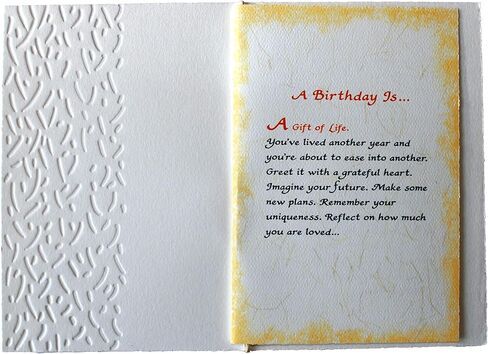 A Birthday Is...
A Gift of Life.
You've lived another year and
you're about to ease into another.
Greet it with a grateful heart.
Imagine your future. Make some
new plans. Remember your
uniqueness. Reflect on how much
you are loved...